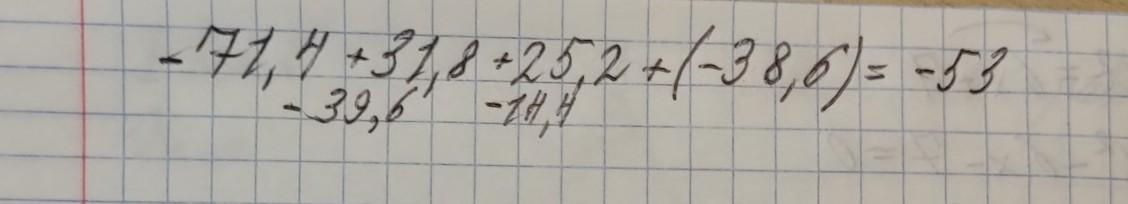 -71,4 +31,8 +25,2 +(-38,6)= -53
-39,6 -14,4